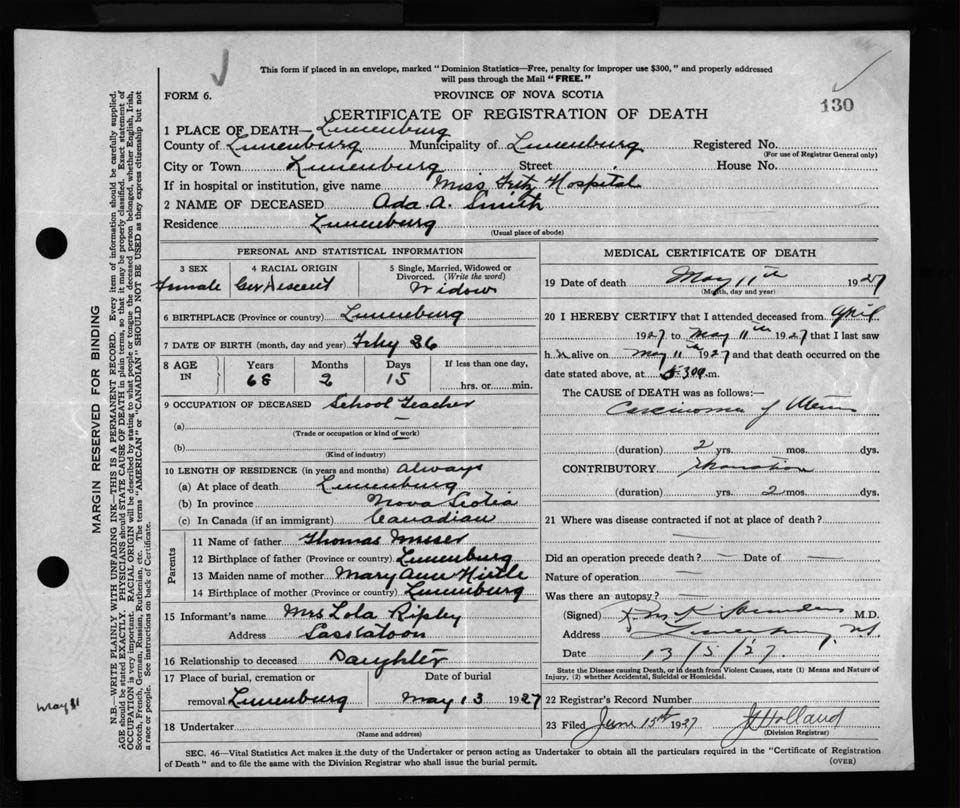 This form if placed in an envelope, marked "Dominion Statistics—Free, penalty for improper use $300," and properly addressed
will pass through the Mail "FREE."
FORM 6.
PROVINCE OF NOVA SCOTIA
130
CERTIFICATE OF REGISTRATION OF DEATH
1 PLACE OF DEATH— Lunenburg
County of Lunenburg Municipality of Lunenburg Registered No.
(For use of Registrar General only)
City or Town Lunenburg Street House No.
If in hospital or institution, give name Miss Hospital
2 NAME OF DECEASED Ada A. Smith
Residence Lunenburg
(Usual place of abode)
PERSONAL AND STATISTICAL INFORMATION
3 SEX 4 RACIAL ORIGIN 5 Single, Married, Widowed or
Divorced. (Write the word)
Female Ger Descent Widow
6 BIRTHPLACE (Province or country) Lunenburg
7 DATE OF BIRTH (month, day and year) Feby 26
8 AGE IN Years Months Days If less than one day,
68 2 15 hrs. or min.
9 OCCUPATION OF DECEASED School Teacher
(a) —
(Trade or occupation or kind of work)
(b)
(Kind of industry)
10 LENGTH OF RESIDENCE (in years and months) Always
(a) At place of death Lunenburg
(b) In province Nova Scotia
(c) In Canada (if an immigrant) Canadian
Parents
11 Name of father Thomas
12 Birthplace of father (Province or country) Lunenburg
13 Maiden name of mother Mary Ann Hirtle
14 Birthplace of mother (Province or country) Lunenburg
15 Informant's name Mrs Lola Ripley
Address Sasslatoon
16 Relationship to deceased Daughter
17 Place of burial, cremation or Date of burial
removal Lunenburg May 13 1927
18 Undertaker
(Name and address)
MEDICAL CERTIFICATE OF DEATH
19 Date of death May 11th 1927
(Month, day and year)
20 I HEREBY CERTIFY that I attended deceased from April
1927 to May 11th 1927 that I last saw
h alive on May 11th 1927 and that death occurred on the
date stated above, at m.
The CAUSE of DEATH was as follows:—
Carcinoma of Uterus
(duration) 2 yrs. mos. dys.
CONTRIBUTORY
(duration) yrs. 2 mos. dys.
21 Where was disease contracted if not at place of death?
—
Did an operation precede death? — Date of —
Nature of operation —
Was there an autopsy? —
(Signed) M.D.
Address Lunenburg, N.S.
Date 13/5/27.
State the Disease causing Death, or in death from Violent Causes, state (1) Means and Nature of
Injury, (2) whether Accidental, Suicidal or Homicidal.
22 Registrar's Record Number
23 Filed June 15th 1927 Holland
(Division Registrar)
SEC. 46—Vital Statistics Act makes it the duty of the Undertaker or person acting as Undertaker to obtain all the particulars required in the "Certificate of Registration
of Death" and to file the same with the Division Registrar who shall issue the burial permit. (OVER)
MARGIN RESERVED FOR BINDING
N.B.—WRITE PLAINLY WITH UNFADING INK—THIS IS A PERMANENT RECORD. Every item of information should be carefully supplied.
AGE should be stated EXACTLY. PHYSICIANS should STATE CAUSE OF DEATH in plain terms, so that it may be properly classified. Exact statement of
OCCUPATION is very important. RACIAL ORIGIN will be described by stating to what people or tongue the deceased person belonged, whether English, Irish,
Scotch, French, German, Russian, Ruthenian, etc. The terms "AMERICAN" or "CANADIAN" SHOULD NOT BE USED as they express citizenship but not
a race or people. See instructions on back of Certificate.